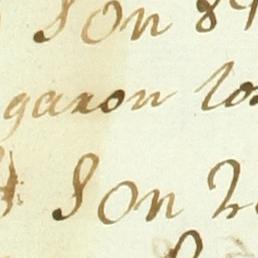 Son 8
garon los
Son 2